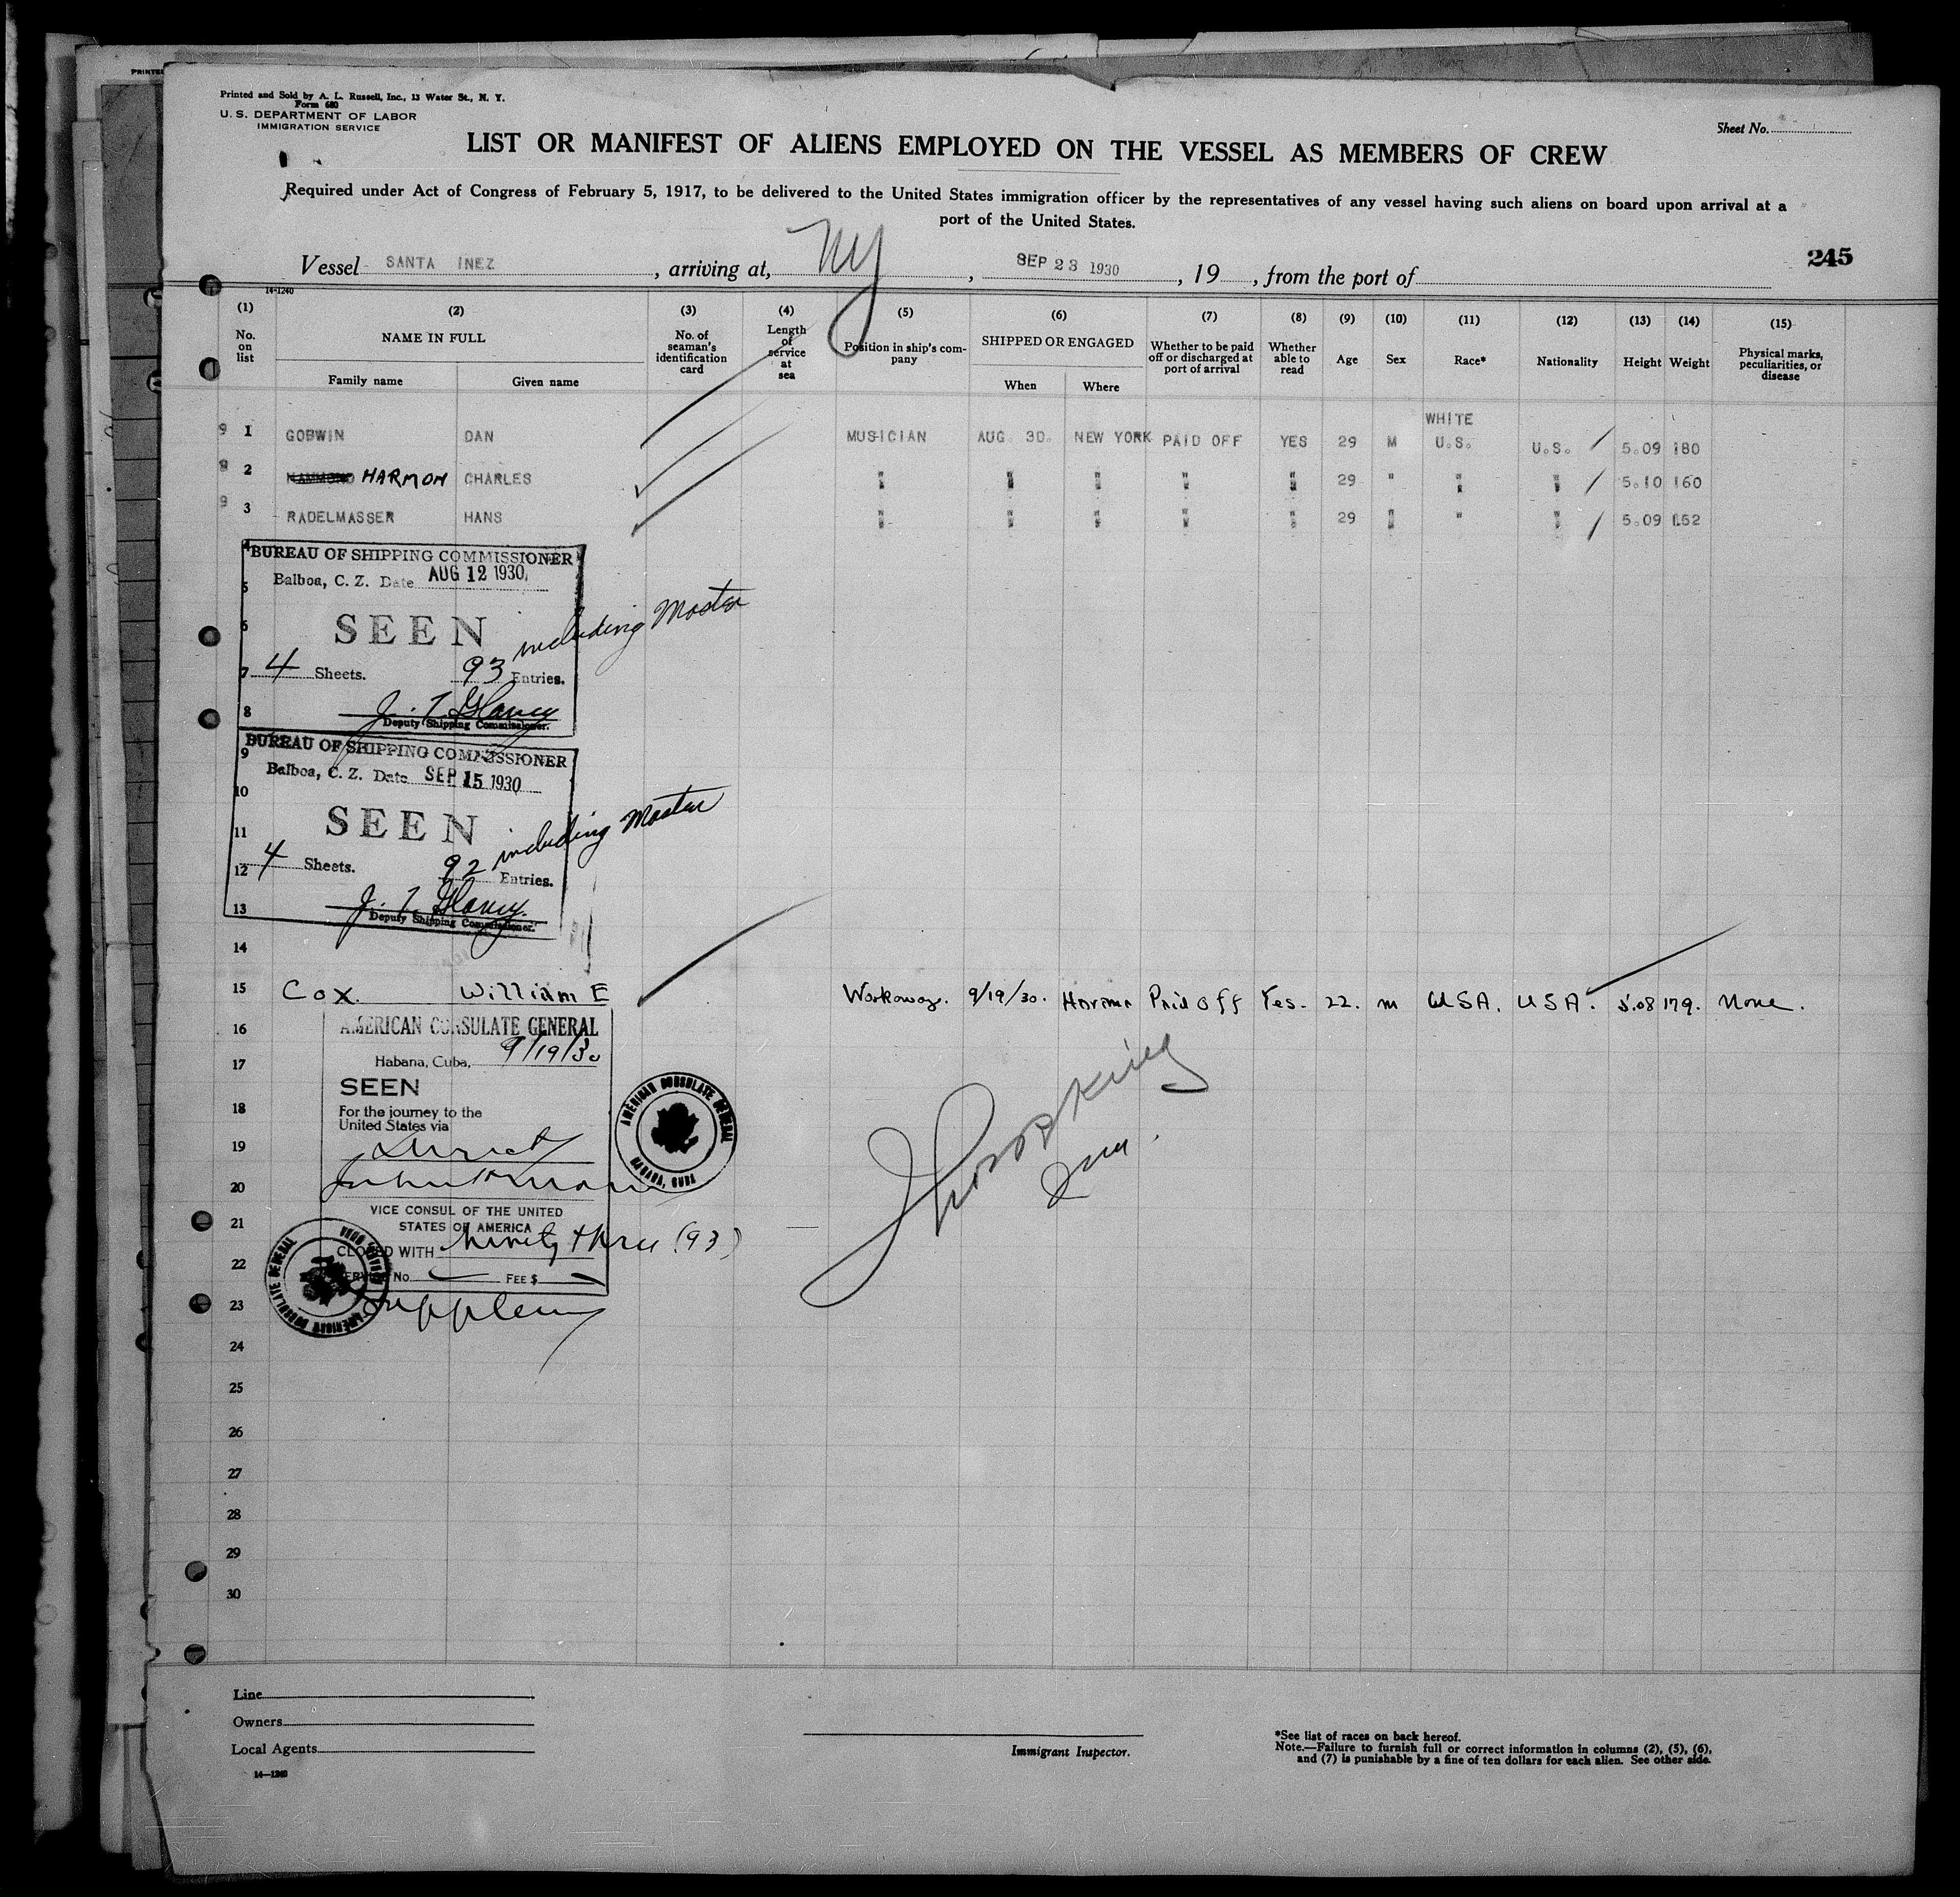 PRINTE
Printed and Sold by A. L. Russell, Inc., 13 Water St., N. Y.
Form 680
U. S. DEPARTMENT OF LABOR
IMMIGRATION SERVICE
Sheet No.
LIST OR MANIFEST OF ALIENS EMPLOYED ON THE VESSEL AS MEMBERS OF CREW
Required under Act of Congress of February 5, 1917, to be delivered to the United States immigration officer by the representatives of any vessel having such aliens on board upon arrival at a
port of the United States.
245
Vessel SANTA INEZ, arriving at, NY, SEP 23 1930, 19 , from the port of
14-1240
(1) (2) (3) (4) (5) (6) (7) (8) (9) (10) (11) (12) (13) (14) (15)
No. on list NAME IN FULL No. of seaman's identification card Length of service at sea Position in ship's company SHIPPED OR ENGAGED Whether to be paid off or discharged at port of arrival Whether able to read Age Sex Race* Nationality Height Weight Physical marks, peculiarities, or disease
Family name Given name When Where
WHITE
9 1 GOBWIN DAN MUSICIAN AUG. 30. NEW YORK PAID OFF YES 29 M U.S. U.S. 5.09 180
9 2 HARMON CHARLES " " " " " 29 " " " 5.10 160
9 3 RADELMASSER HANS " " " " " 29 " " " 5.09 152
4
BUREAU OF SHIPPING COMMISSIONER
5 Balboa, C. Z. Date AUG 12 1930
6 SEEN including Master
7 4 Sheets. 93 Entries.
8 J. T.
Deputy Shipping Commissioner.
BUREAU OF SHIPPING COMMISSIONER
9
Balboa, C. Z. Date SEP 15 1930
10
11 SEEN including Master
12 4 Sheets. 92 Entries.
13 J. T.
Deputy Shipping Commissioner.
14
15 Cox. William E Workaway. 9/19/30. Havana Paid Off Yes. 22. m USA. USA. 5.08 179. None.
16 AMERICAN CONSULATE GENERAL
17 Habana, Cuba, 9/19/30
SEEN
18 For the journey to the
United States via
19 Direct
20
VICE CONSUL OF THE UNITED
21 STATES OF AMERICA
CLOSED WITH Ninety three (93)
22 SERVICE No. FEE $
23
AMERICAN CONSULATE GENERAL
HABANA, CUBA
AMERICAN CONSULATE GENERAL
HABANA, CUBA
24
25
26
27
28
29
30
Line
Owners
Local Agents
14—1240
Immigrant Inspector.
*See list of races on back hereof.
Note.—Failure to furnish full or correct information in columns (2), (5), (6),
and (7) is punishable by a fine of ten dollars for each alien. See other side.